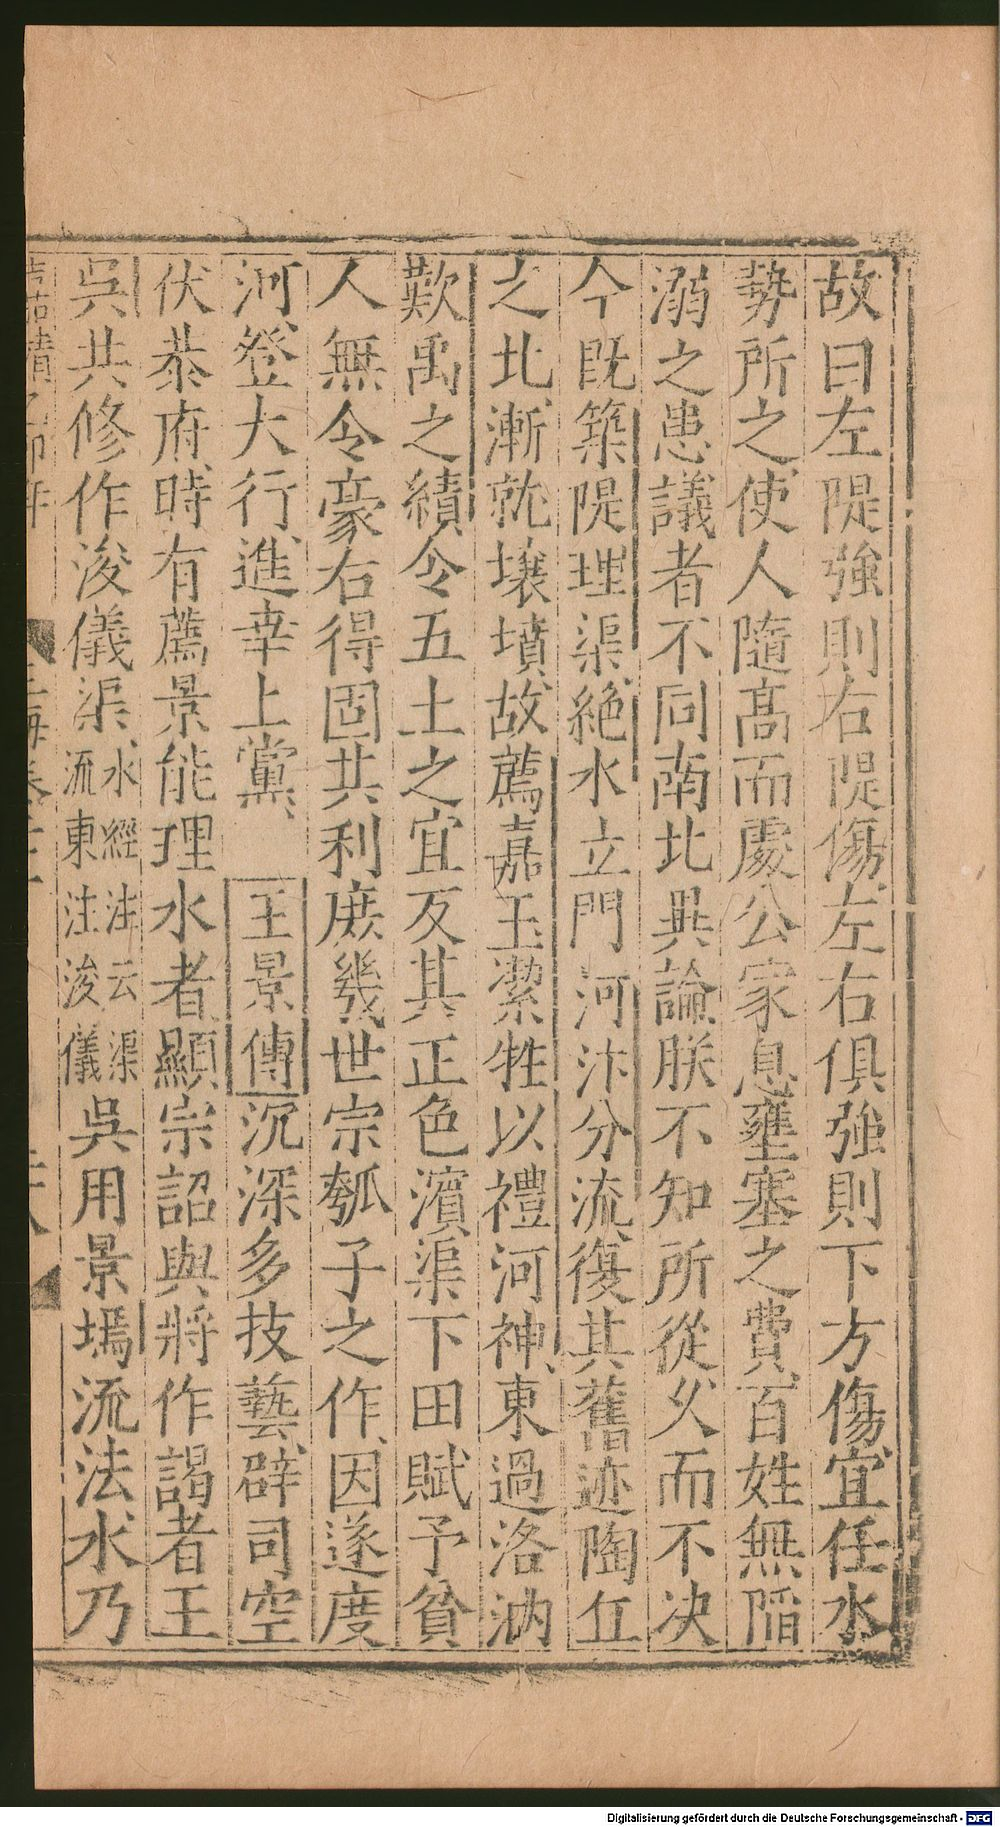 故曰左隄強則右隄傷左右俱強則下方傷宜任水
勢所之使人隨高而處公家息壅塞之費百姓無陷
溺之患議者不同南北異論朕不知所從乆而不决
今既築隄理渠絶水立門河汴分流復其舊迹陶丘
之北漸就壤墳故薦嘉玉潔牲以禮河神東過洛汭
歎禹之績今五土之宜反其正色濱渠下田賦予貧
人無令豪右得固其利庶幾世宗瓠子之作因遂度
河登大行進幸上黨 王景傳沉深多技藝辟司空
伏恭府時有薦景能理水者顯宗詔與將作謁者王
吳共修作浚儀渠水經注云渠流東注浚儀吳用景墕流法水乃
Digitalisierung gefördert durch die Deutsche Forschungsgemeinschaft - DFG